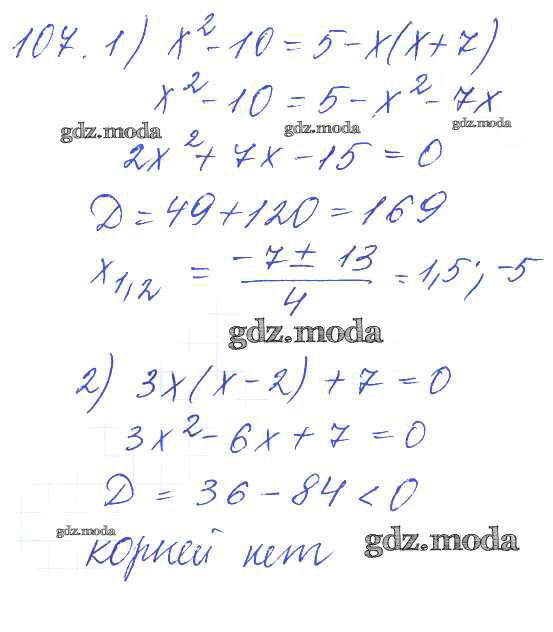 107. 1) x² - 10 = 5 - x(x + 7)
x² - 10 = 5 - x² - 7x
gdz.moda gdz.moda gdz.moda
2x² + 7x - 15 = 0
D = 49 + 120 = 169
x₁,₂ = (-7 ± 13)/4 = 1,5; -5
gdz.moda
2) 3x(x - 2) + 7 = 0
3x² - 6x + 7 = 0
D = 36 - 84 < 0
gdz.moda
корней нет gdz.moda